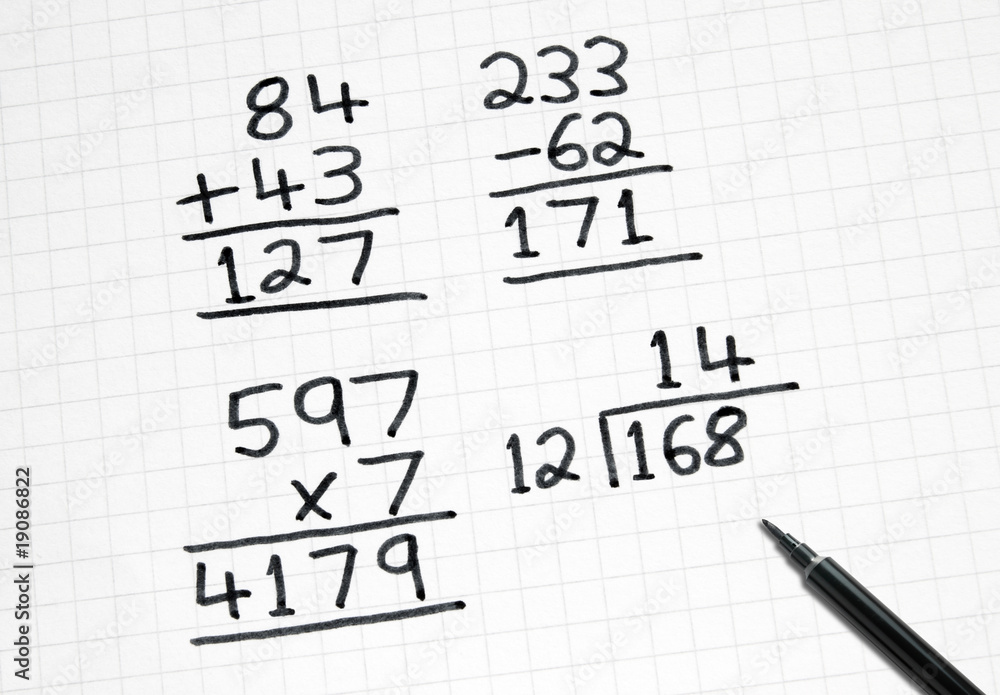 84
+43
127
233
-62
171
597
x 7
4179
14
12 168
Adobe Stock | #19086822